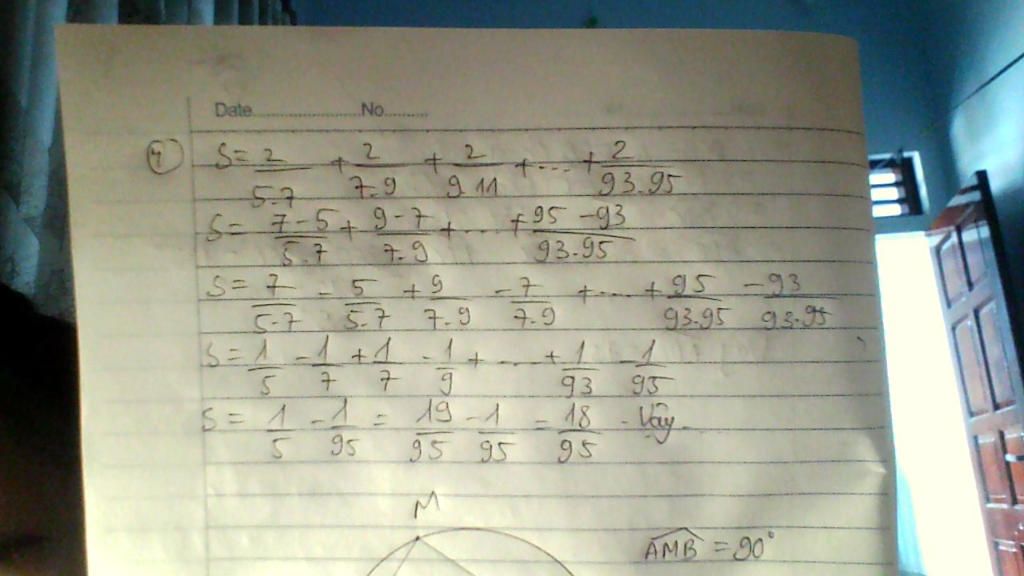 Date.....................No..........
4 S = 2/5.7 + 2/7.9 + 2/9.11 + ... + 2/93.95
S = 7-5/5.7 + 9-7/7.9 + ... + 95-93/93.95
S = 7/5.7 - 5/5.7 + 9/7.9 - 7/7.9 + ... + 95/93.95 - 93/93.95
S = 1/5 - 1/7 + 1/7 - 1/9 + ... + 1/93 - 1/95
S = 1/5 - 1/95 = 19/95 - 1/95 = 18/95 . Vậy
M
AMB = 90°